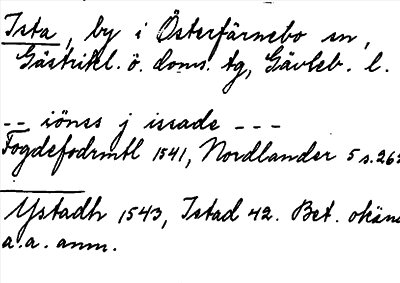 Ista, by i Österfärnebo sn,
Gästrikl. ö. doms. tg, Gävleb. l.
-- iönss j issade ---
Fogdefodrmtl 1541, Nordlander 5 s.262
Ystadh 1543, Istad 42. Bet. okän
a.a. anm.